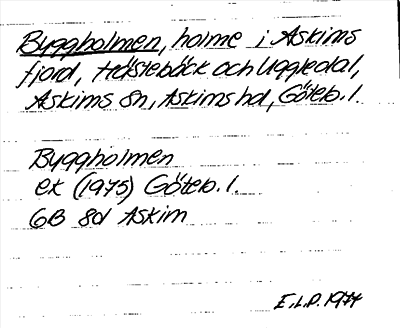 Byggholmen, holme i Askims
fjord, Hästebäck och Uggledal,
Askims sn, Askims hd, Göteb. l.
Byggholmen
ek (1975) Göteb. l.
6B 8d Askim
E.L.P. 1974